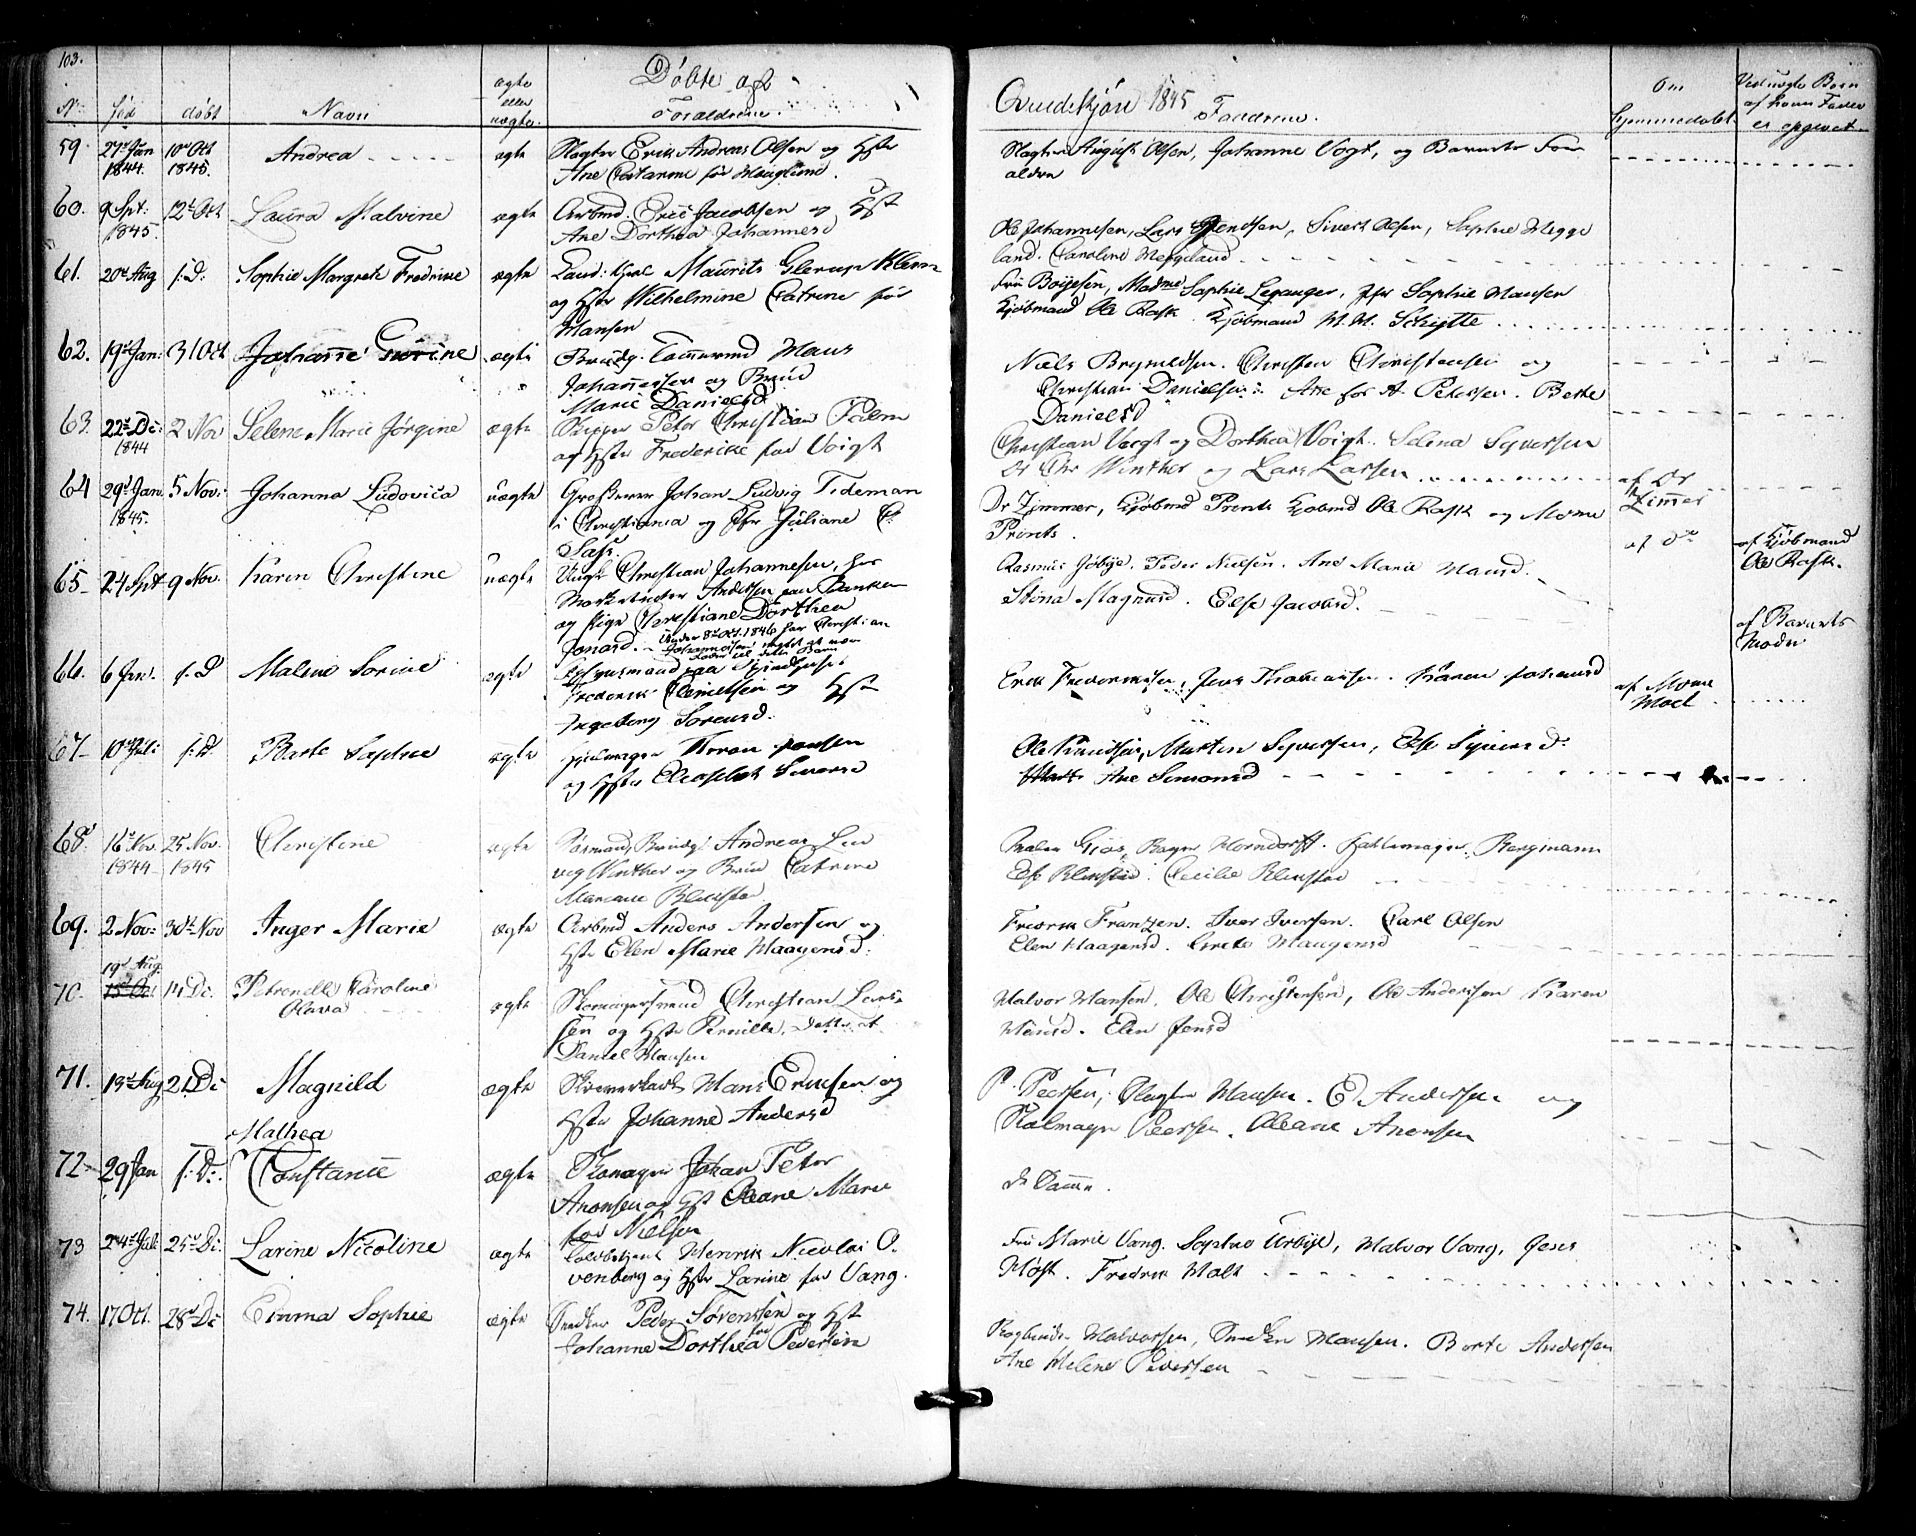 103.
Døbte af
Qvindekjøn 1845
No. fød døbt Navn ægte eller uægte. Forældrene. Fadderne. Om hjemmedøbt Ved uægte Børn af hvem Fader er opgivet
59. 27de Jan 1844. 10de Oct 1845. Andrea ægte Slagter Erik Andreas Olsen og Hstr
Ane Catarine før Hauglund.
Slagter August Olsen, Johanne Vogt, og Barnets For
ældre
60. 9 Spt: 1845. 12t Oct Laura Malvine ægte Arbmd. Eric Jacobsen og Hst
Ane Dorthea Johannesd
Ole Johannesen, Lars Svendsen, Sivert Olsen, Sophie Megge
land. Caroline Meggeland
61. 20de Aug s: D: Sophie Margrete Fredrikke ægte Mauritz Glerup Klem
og Hstr Wilhelmine Catrine før
Hansen
Fru Boyesen, Madme Sophie Leganger, Jfr Sophie Hansen
Kjøbmand Ole Rask. Kjøbmand M. M. Schytte
62. 19de Jan: 31 Oct Johanne ægte Brudg. Tømmermd Hans
Johannessen og Brud
Marie Danielsd
Niels Brynildsen. Christen Christensen og
Christian Danielsen. Ane for A. Petersen. Berte
Danielsd
63. 22de De: 1844 2 Nov Selene Marie Jørgine ægte Skipper Peter Christian Palm
og Hstr Frederikke før Voigt
Christian Voigt og Dorthea Voigt. Selina Syversen
Chr Winther og Lars Larsen
64 29de Jan 1845. 5 Nov: Johanna Ludovica uægte Grosserer Johan Ludvig Tideman
i Christiania og Jfr Juliane C.
Sass.
Dr Zimmer, Kjøbmd Prints Kjøbmd Ole Rask og Mdme
Prints.
af Dr Zimmer
af Kjøbmand
Ole Rask.
65 24 Spt 9 Nov. Karen Christine uægte Ungk Christian Johannesen, hos
Andersen paa Banken
og Pige Christiane Dorthea
Jonasd. Under 8de Oct. 1846 har Christian
Johannesen nægtet at være
Fader til dette Barn
Rasmus Peder Nielsen. Ane Marie Hansd.
Stina Magnusd. Else Jacobsd.
af do
af Barnets
Moder
66. 6 Jan. s. D Malene Sorine ægte
Frederik og Hst
Ingeborg Sorensd.
Erik Frederiksen, Jens Thomassen. Karen Johansd
af Mdme
Moel
67 10de Juli s: D. Berte Sophie ægte Hjulmager Aron Jansen
og Hstr Elisabet Siversd
Ole Knudsen, Martin Syversen, Else Syversd.
Ane Simonsd
68. 16de Nov. 1844 25 Nov. 1845 Christine ægte Brudg. Andreas Lud
vig Winther og Brud Catrine
Mariane Blikstad
Maler Bager Horndorff. Bergmann
Else Blikstad. Cecilie Blikstad
69. 2 Nov: 30t Nov Inger Marie ægte Arbmd Anders Andersen og
Hstr Elen Marie Haagensd.
Fredrik Frantzen. Iver Iversen. Carl Olsen
Elen Haagensd. Grete Haugensd
70. 19de Aug. 14 De. Petronelle Caroline
Olava
ægte Skomagersvend Christian Lars
sen og Hstr Pernille, Datter af
Daniel Hansen
Halvor Hansen, Ole Christensen, Ole Andersen Karen
Hansd. Elen Jensd
71. 19de Aug 21 De Magnild ægte Hans Ericksen og
Hstr Johanne Andersd
P. Peersen, Slagter Hansen. E Andersen og
Peersen. Oleane Anonsen
72 29 Jan s. D: Mathea
Constance ægte Skomager Johan Peter
Anonsen og Hst Oleane Marie
før Nielsen
De Samme.
73 24de Juli 25de De. Larine Nicoline ægte Toldbetjent Henrik Nicolai O.
venberg og Hstr Larine før Vang.
Fru Marie Vang. Sophie Urbye, Halvor Vang, Jens
Høst. Fredrik Holt
74. 17 Oct. 28de De Emma Sophie ægte Snedker Peder Sørensen og Hst
Johanne Dorthea før Pedersen
Halvorsen, Snedker Hansen. Berte Andersen
Ane Helene Pedersen